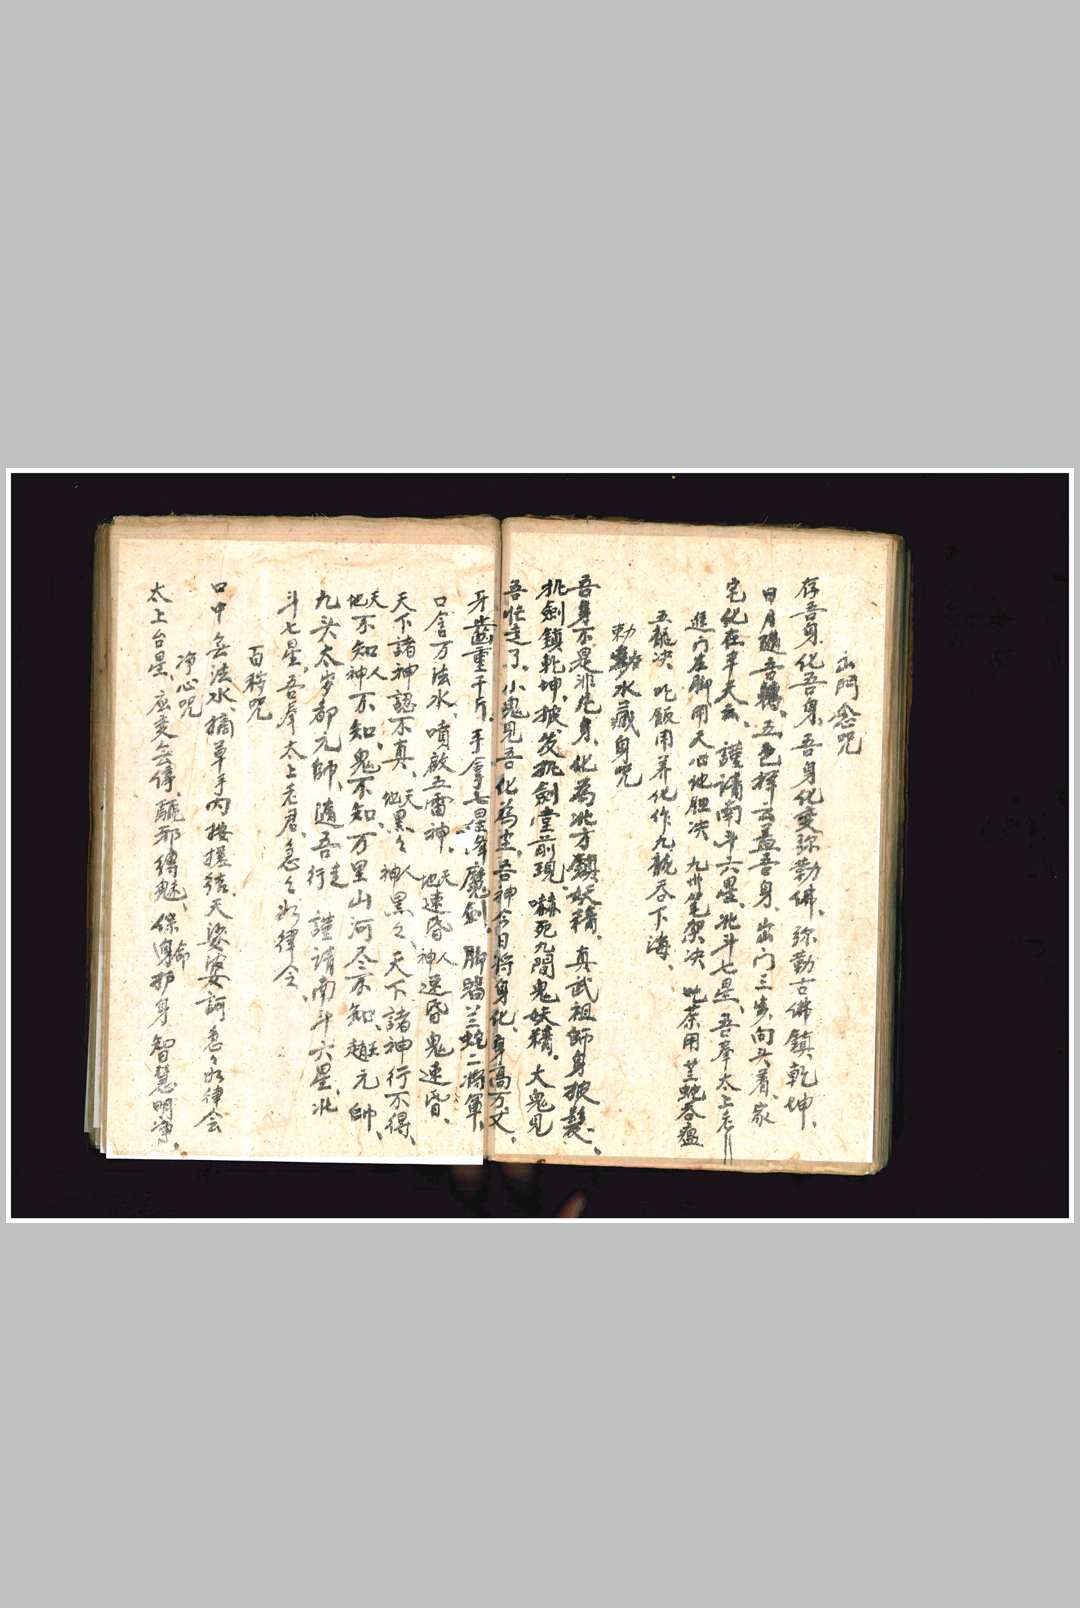 出門念咒
存吾身化吾身、吾身化变弥勒佛、弥勒古佛鎮乾坤、
日月隨吾轉、五色祥云盖吾身、出门三步向头看、家
宅化在半天云、謹請南斗六星、北斗七星、吾奉太上老
進门左脚用天心地胆决、九州笔架决、吃茶用芏蛇吞瘟
五龍决、吃飯用养化作九龍吞下海、
勅水藏身咒
吾身不是非凡身、化為北方鎮妖精、真武祖師身披髮、
扎劍鎖乾坤、披发扎劍堂前現、嚇死九間鬼妖精、大鬼見
吾忙走了、小鬼見吾化為尘、吾神今日将身化、身高万丈、
牙齒重千斤、手拿七星斬魔剑、脚踏兰蛇二将軍、
口含万法水、噴啟五雷神、天地速昏、人神速昏鬼速昏、
天下諸神認不真、天地黑々、人神黑々、天下諸神行不得、
天地不知人神不知、鬼不知、万里山河尽不知、趙元帥、
九头太岁都元帥、隨吾行走謹請南斗六星、北
斗七星、吾奉太上老君、急々如律令、
百移咒
口中每法水、摘草手内接援结、天婆婆訶急々如律令
净心咒
太上台星、应变无停、驅邪縛魅、保命护身、智慧明净、